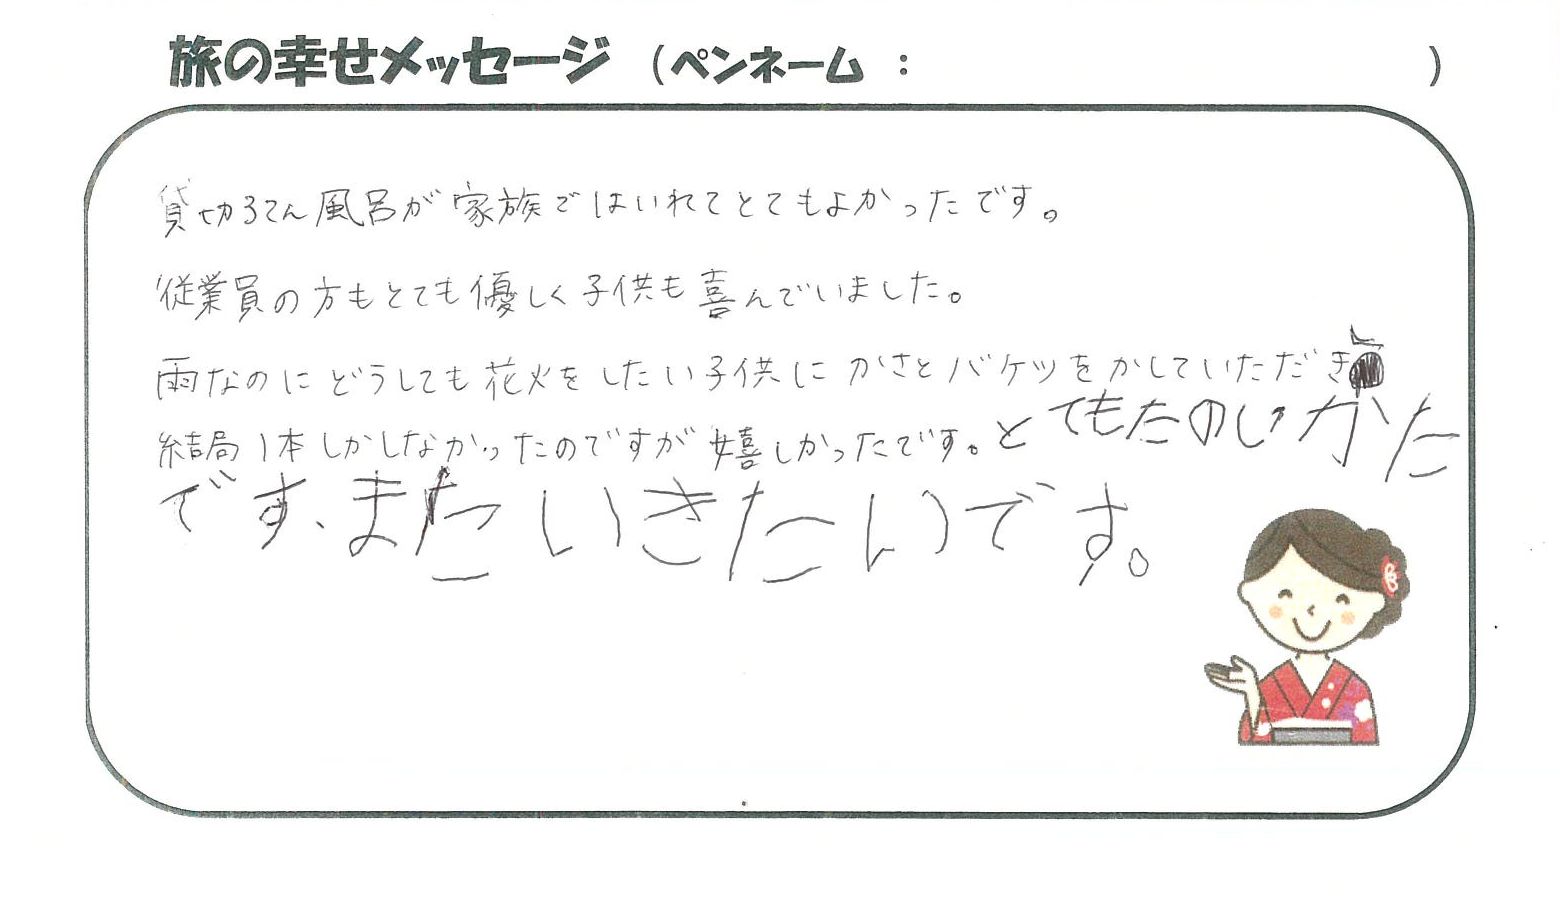 旅の幸せメッセージ (ペンネーム : )
貸切ろてん風呂が家族ではいれてとてもよかったです。
従業員の方もとても優しく子供も喜んでいました。
雨なのにどうしても花火をしたい子供にかさとバケツをかしていただき
結局1本しかしなかったのですが嬉しかったです。とてもたのしかた
です、またいきたいです。